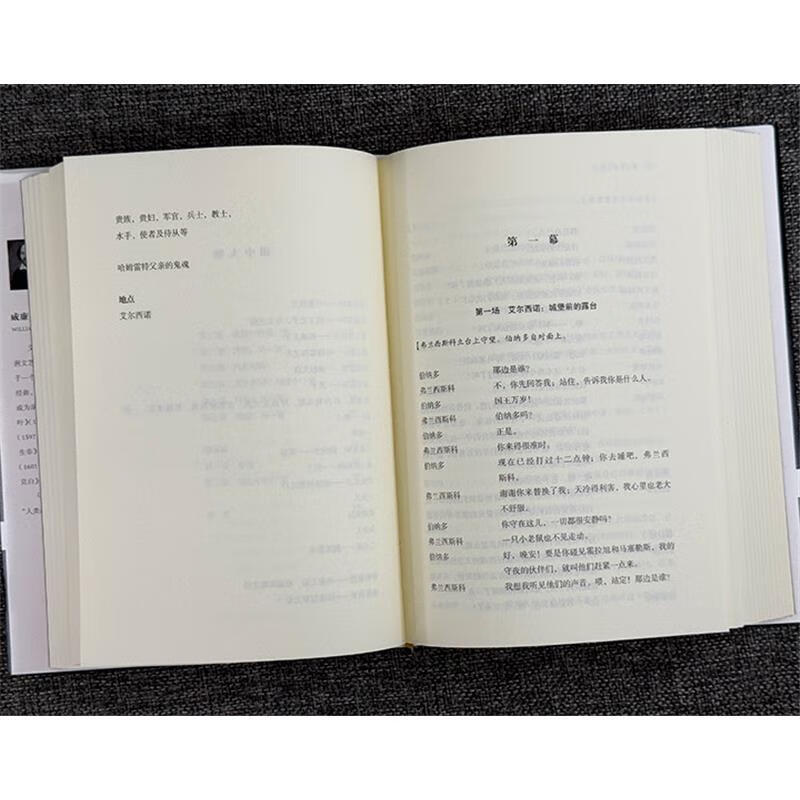 贵族，贵妇，军官，兵士，教士，
水手，使者及侍从等
哈姆雷特父亲的鬼魂
地点
艾尔西诺
威廉
WILLIA
第一幕
第一场 艾尔西诺：城堡前的露台
【弗兰西斯科立台上守望。伯纳多自对面上。
伯纳多 那边是谁？
弗兰西斯科 不，你先回答我；站住，告诉我你是什么人。
伯纳多 国王万岁！
弗兰西斯科 伯纳多吗？
伯纳多 正是。
弗兰西斯科 你来得很准时。
伯纳多 现在已经打过十二点钟；你去睡吧，弗兰西
斯科。
弗兰西斯科 谢谢你来替换我；天冷得利害，我心里也老大
不舒服。
伯纳多 你守在这儿，一切都很安静吗？
弗兰西斯科 一只小老鼠也不见走动。
伯纳多 好，晚安！要是你碰见霍拉旭和马塞勒斯，我的
守夜的伙伴们，就叫他们赶紧一点来。
弗兰西斯科 我想我听见他们的声音。喂，站定！那边是谁？